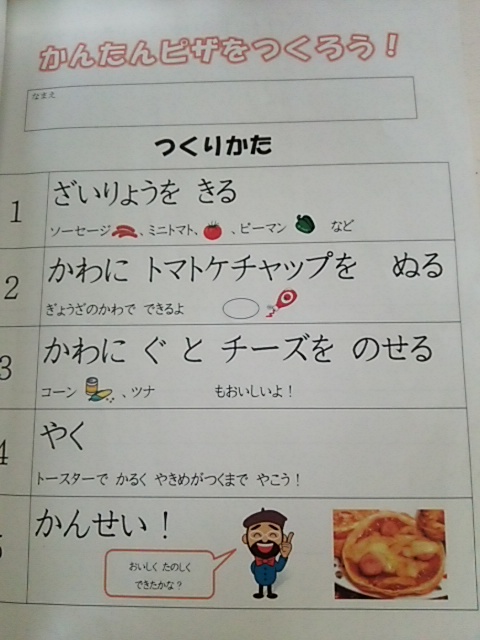 かんたんピザをつくろう！
なまえ
つくりかた
1
ざいりょうを きる
ソーセージ、ミニトマト、ピーマン など
2
かわに トマトケチャップを ぬる
ぎょうざのかわで できるよ
3
かわに ぐ と チーズを のせる
コーン、ツナ もおいしいよ！
4
やく
トースターで かるく やきめがつくまで やこう！
5
かんせい！
おいしく たのしく
できたかな？